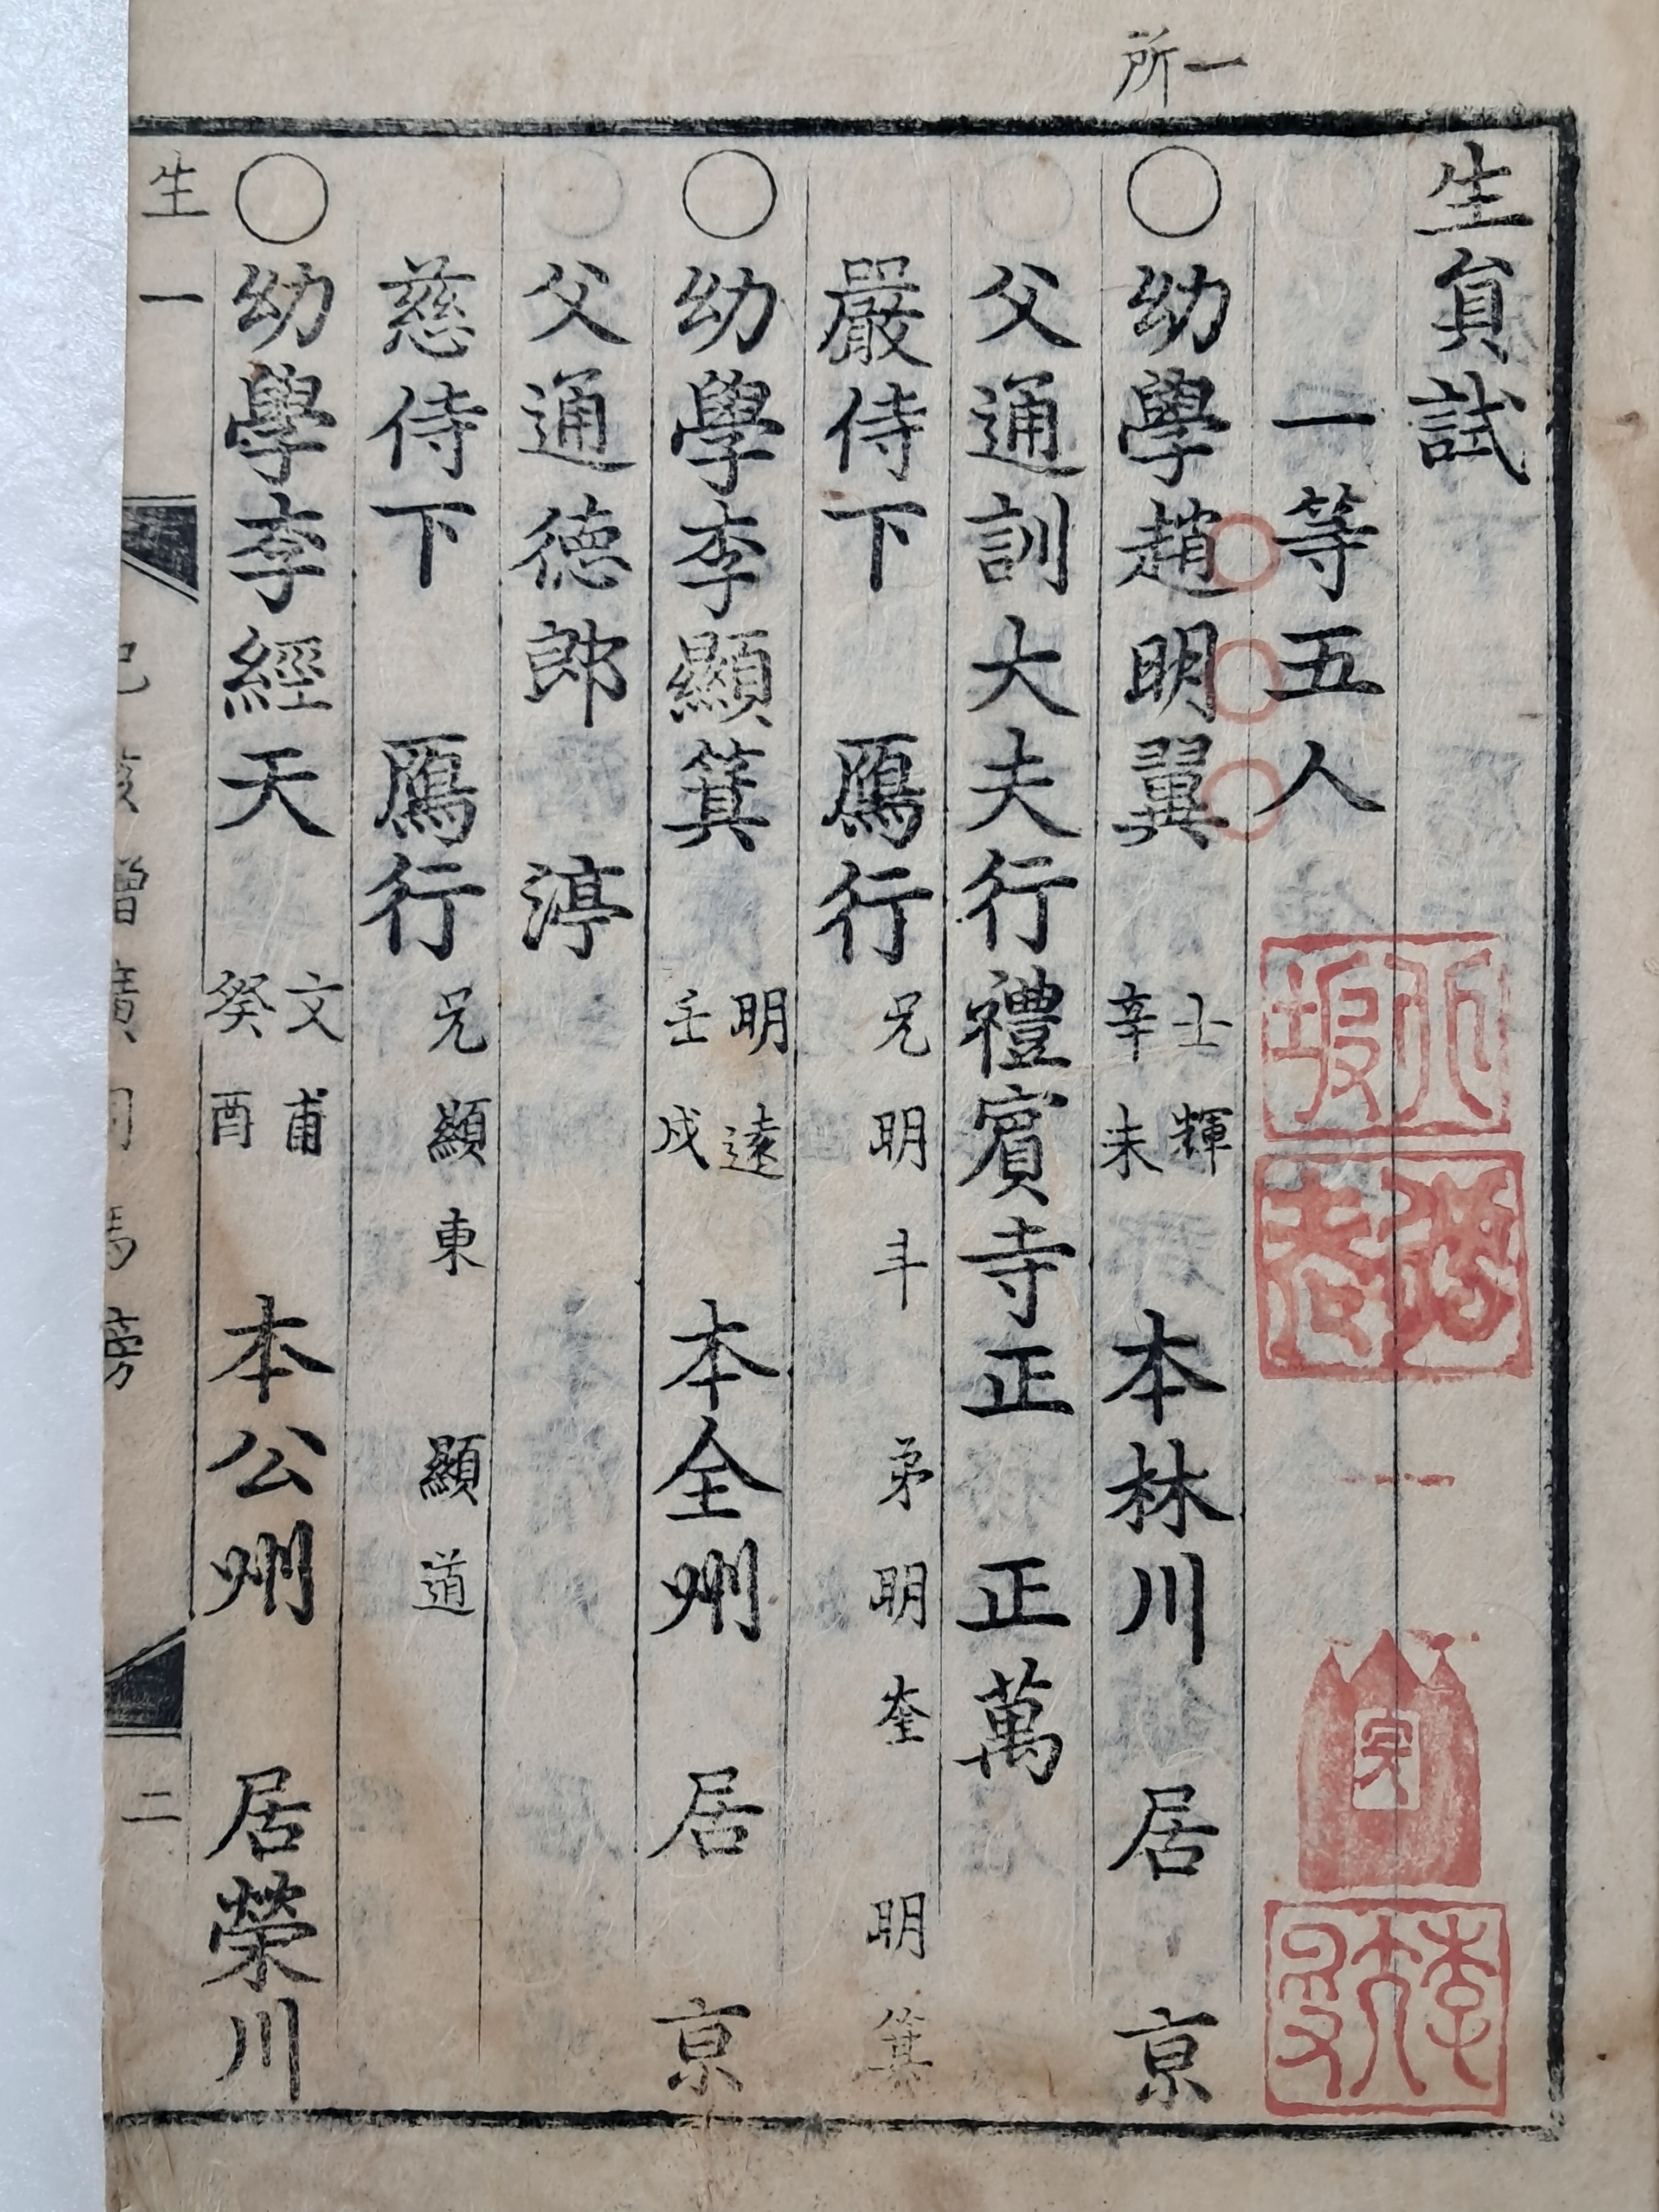 一所
生員試
一等五人
○幼學趙明翼 士輝 辛未 本林川 居京
父通訓大夫行禮賓寺正 正萬
嚴侍下 鴈行 兄明斗 弟明奎 明箕
○幼學李顯箕 明遠 壬戌 本全州 居京
父通德郎 渟
慈侍下 鴈行 兄顯東 顯道
○幼學李經天 文甫 癸酉 本公州 居榮川
生一
二